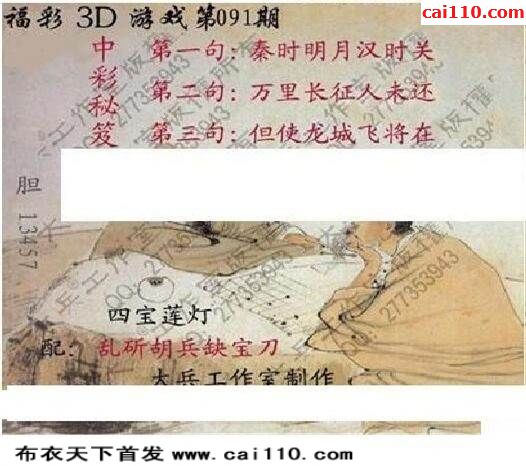 福彩 3D 游戏第091期
cai110.com
中彩秘笈
第一句：秦时明月汉时关
第二句：万里长征人未还
第三句：但使龙城飞将在
胆 13457
四宝莲灯
配：乱斫胡兵缺宝刀
大兵工作室制作
布衣天下首发 www.cai110.com